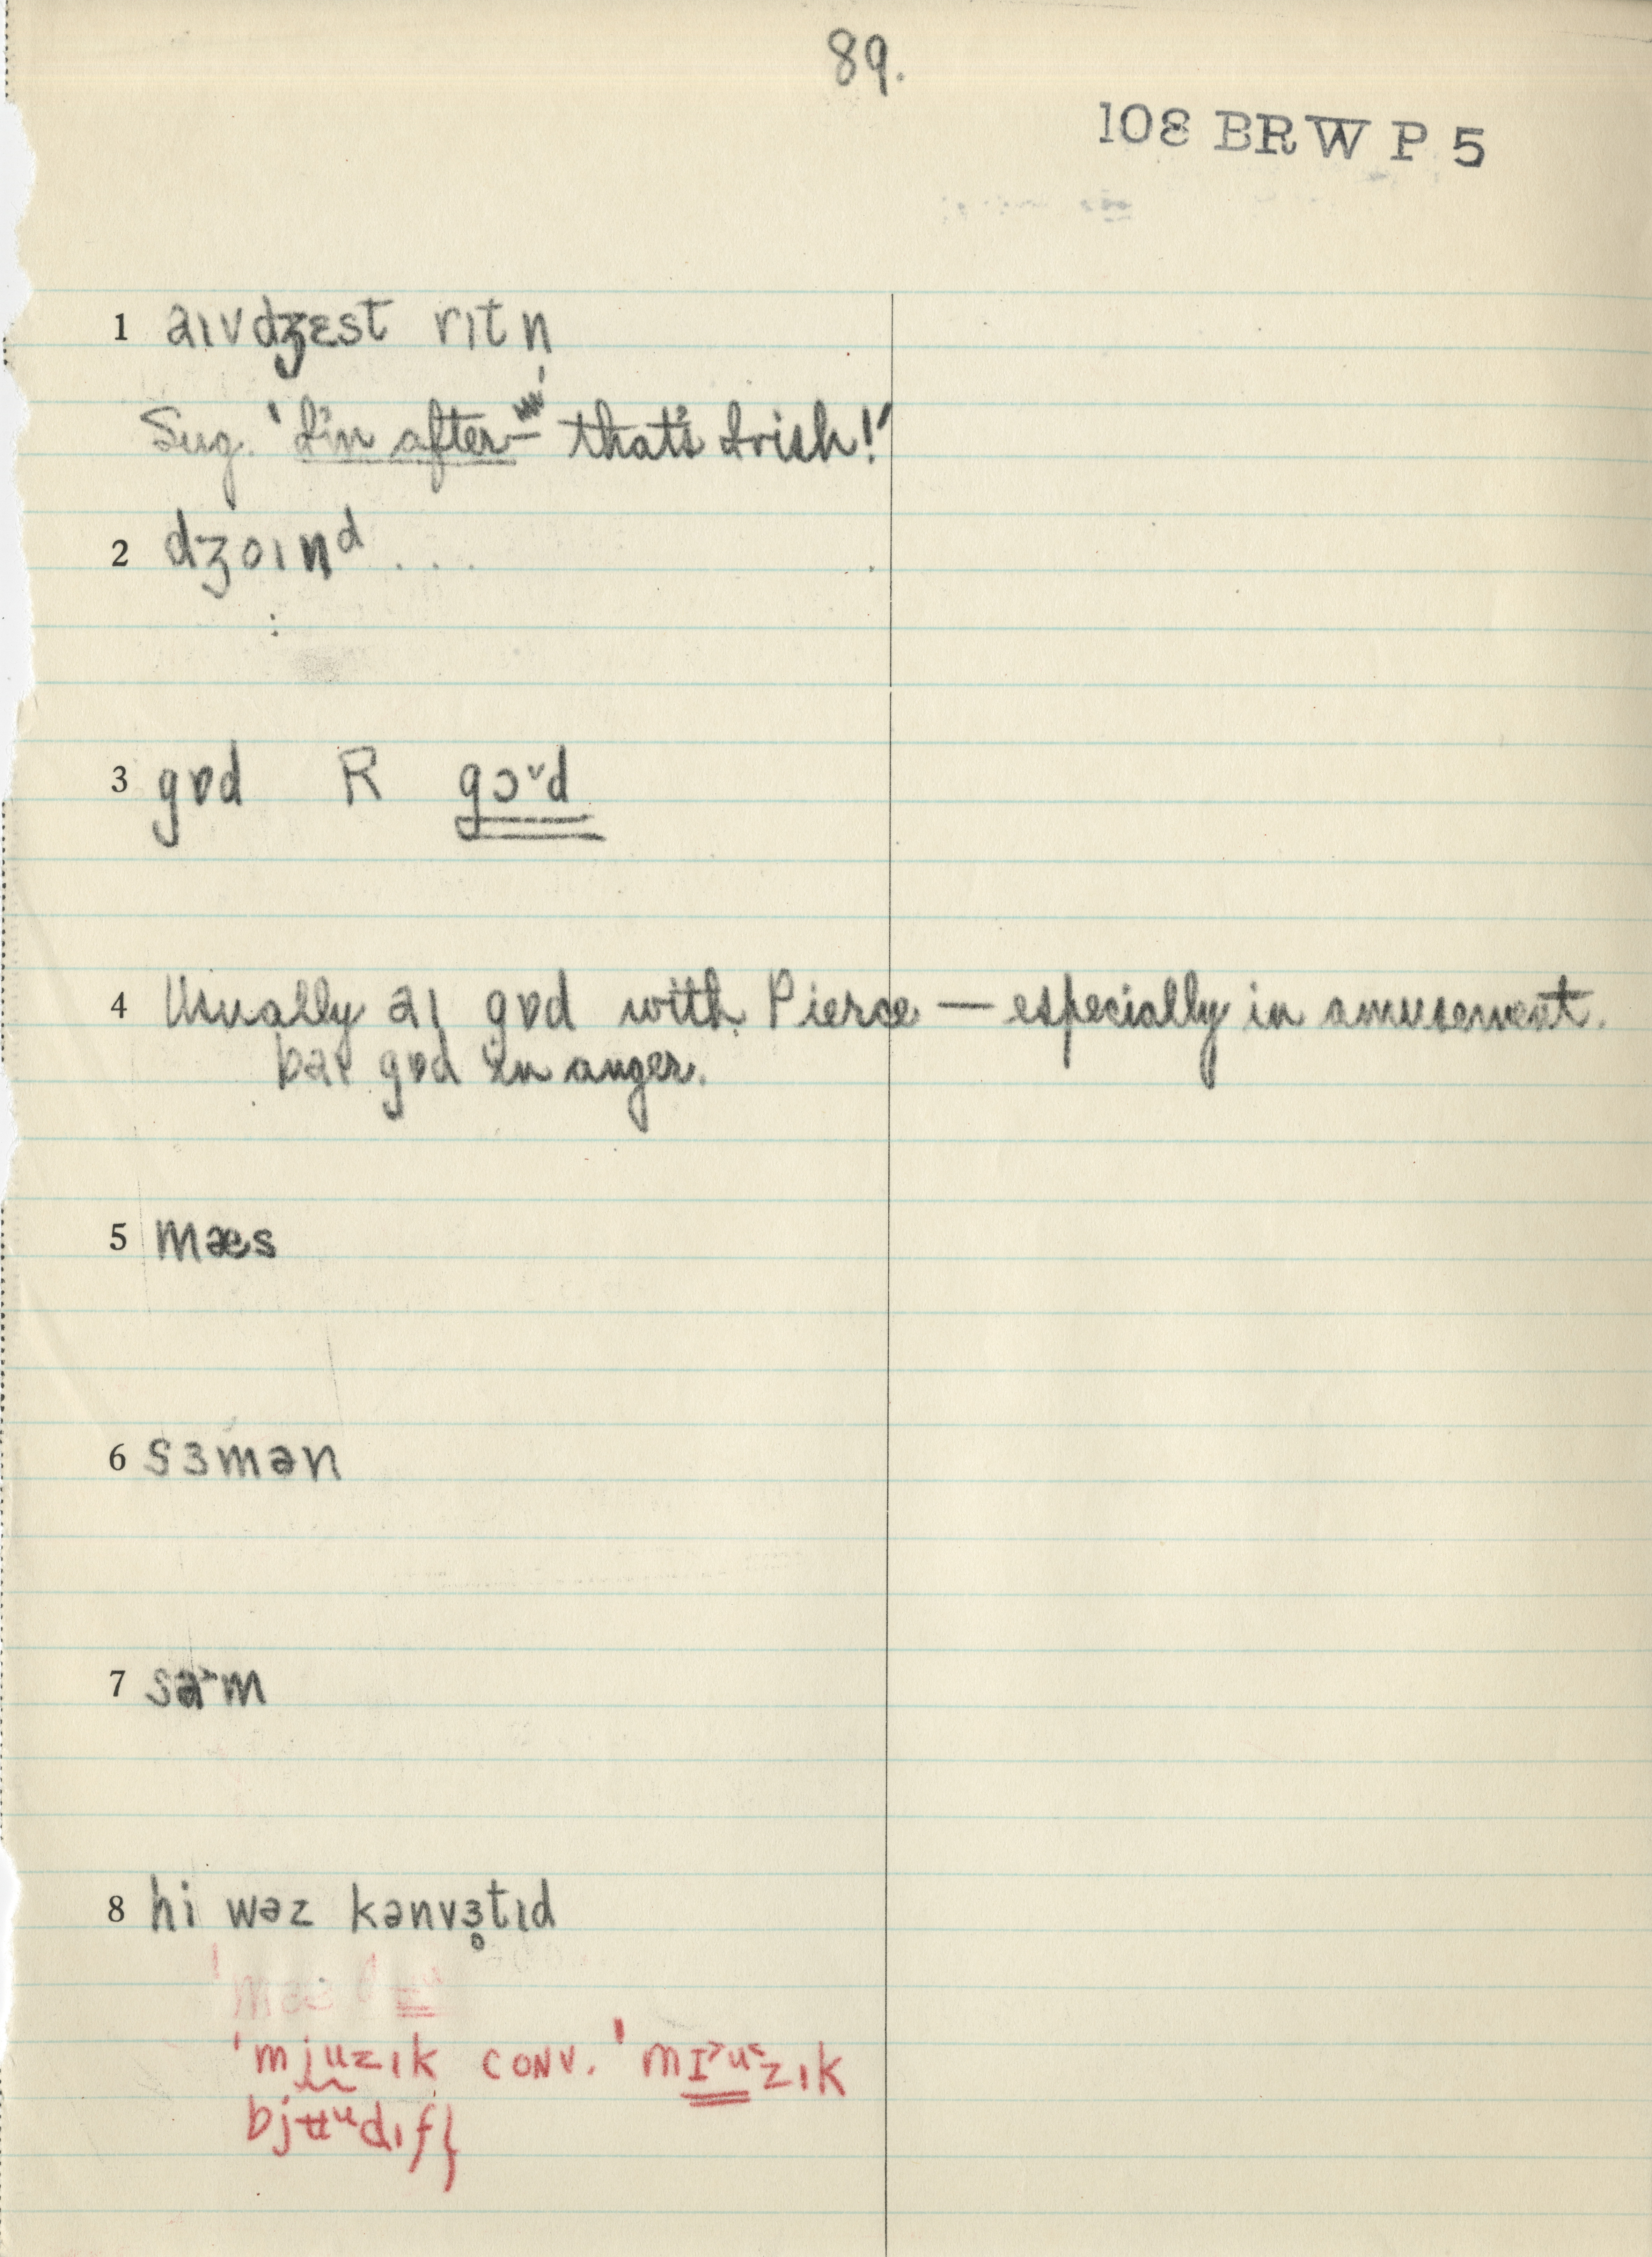 89.
108 BRW P 5
1 aɪvdʒɛst rɪtn̩
Sug. 'I'm after— that's Irish!'
2 dʒɔɪnᵈ . . .
3 gɒd R gɔ˅d
4 Usually aɪ gɒd with Pierce — especially in amusement.
baɪ gɒd in anger.
5 mæs
6 sɜmən
7 sa˃m
8 hi wəz kənvɜ̥tɪd
'mjuzɪk conv. 'mɪ˃u˂zɪk
bjʉᵘdɪfɫ